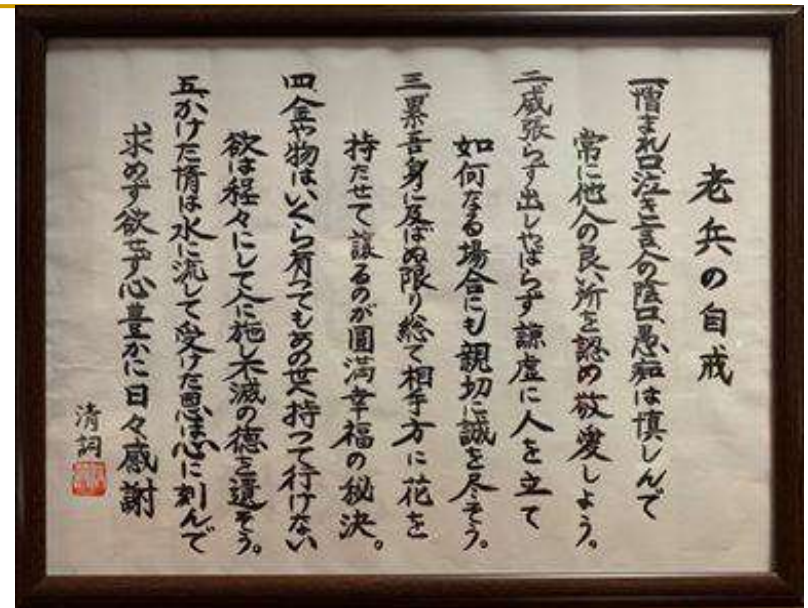 老兵の自戒
一、憎まれ口泣き言人の陰口、愚痴は慎しんで
常に他人の良い所を認め敬愛しよう。
二、威張らず出しやばらず謙虚に人を立て
如何なる場合にも親切に誠を尽そう。
三、累吾身に及ばぬ限り総て相手方に花を
持たせて譲るのが圓満幸福の秘決。
四、金や物はいくら有つてもあの世へ持つて行けない
欲は程々にして人に施し不滅の徳を遺そう。
五、かけた情は水に流して受けた恩は心に刻んで
求めず欲せず心豊かに日々感謝
清詞